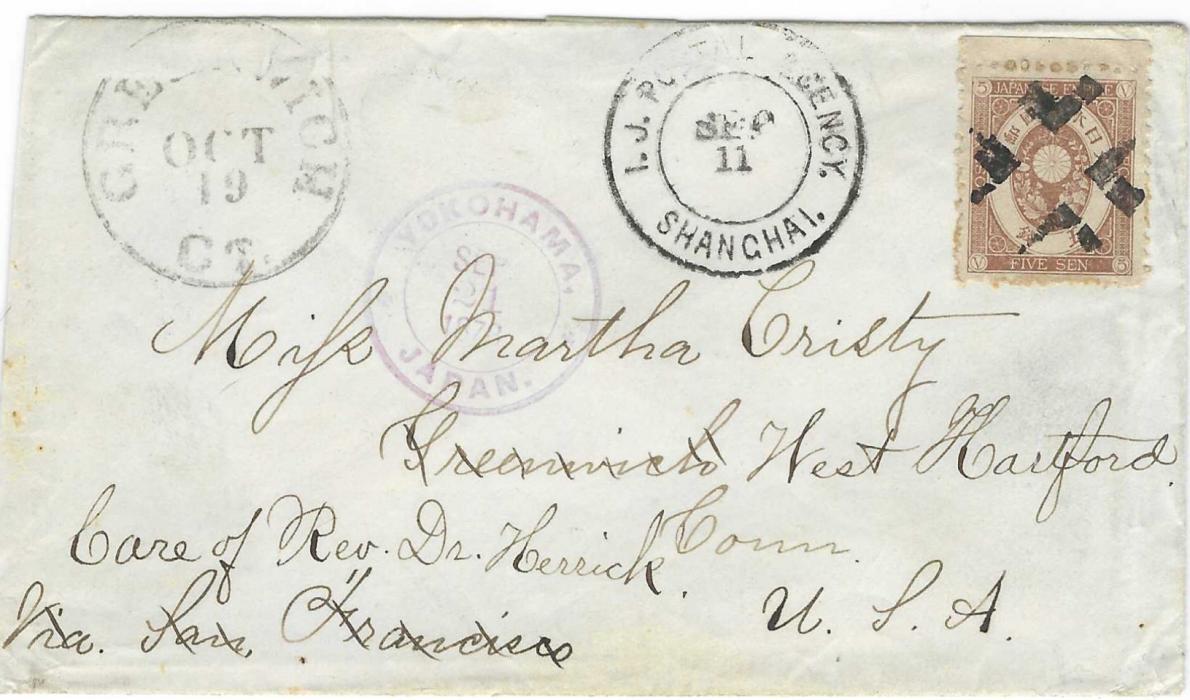 GREENWICH
OCT
19
CT.
I. J. POSTAL AGENCY.
SEP
11
SHANGHAI.
YOKOHAMA,
SEP
JAPAN.
5 JAPANESE EMPIRE V
V FIVE SEN 5
Miss Martha Cristy
Greenwich West Hartford
Conn.
Care of Rev. Dr. Herrick.
U. S. A.
Via. San Francisco